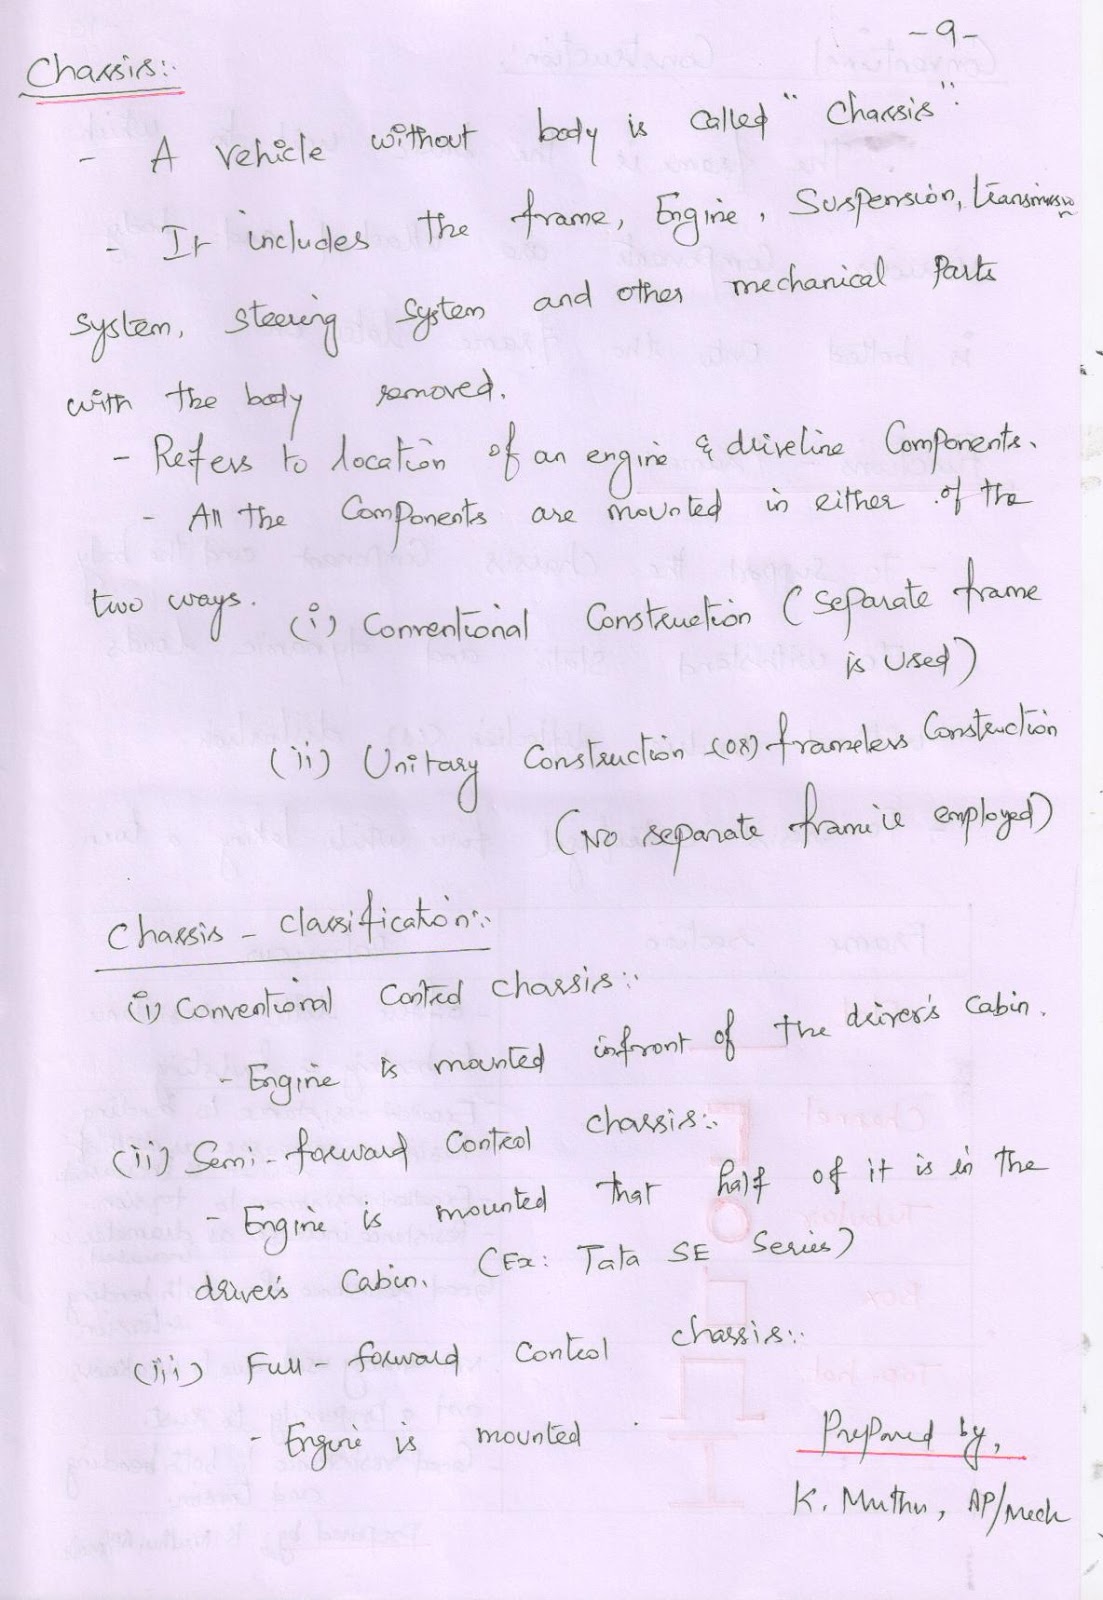 - 9 -
Chassis:-
- A vehicle without body is called "chassis".
- It includes the frame, Engine, Suspension, transmission
system, steering system and other mechanical parts
with the body removed.
- Refers to location of an engine & driveline components.
- All the components are mounted in either of the
two ways.
(i) Conventional Construction (separate frame
is used)
(ii) Unitary Construction (or) frameless Construction
(No separate frame is employed)
Chassis - classification:-
(i) Conventional Control chassis:-
- Engine is mounted infront of the driver's cabin.
(ii) Semi-forward Control chassis:-
- Engine is mounted that half of it is in the
driver's Cabin. (Ex: Tata SE Series)
(iii) Full-forward Control chassis:-
- Engine is mounted
Prepared by,
K. Muthu, AP/Mech